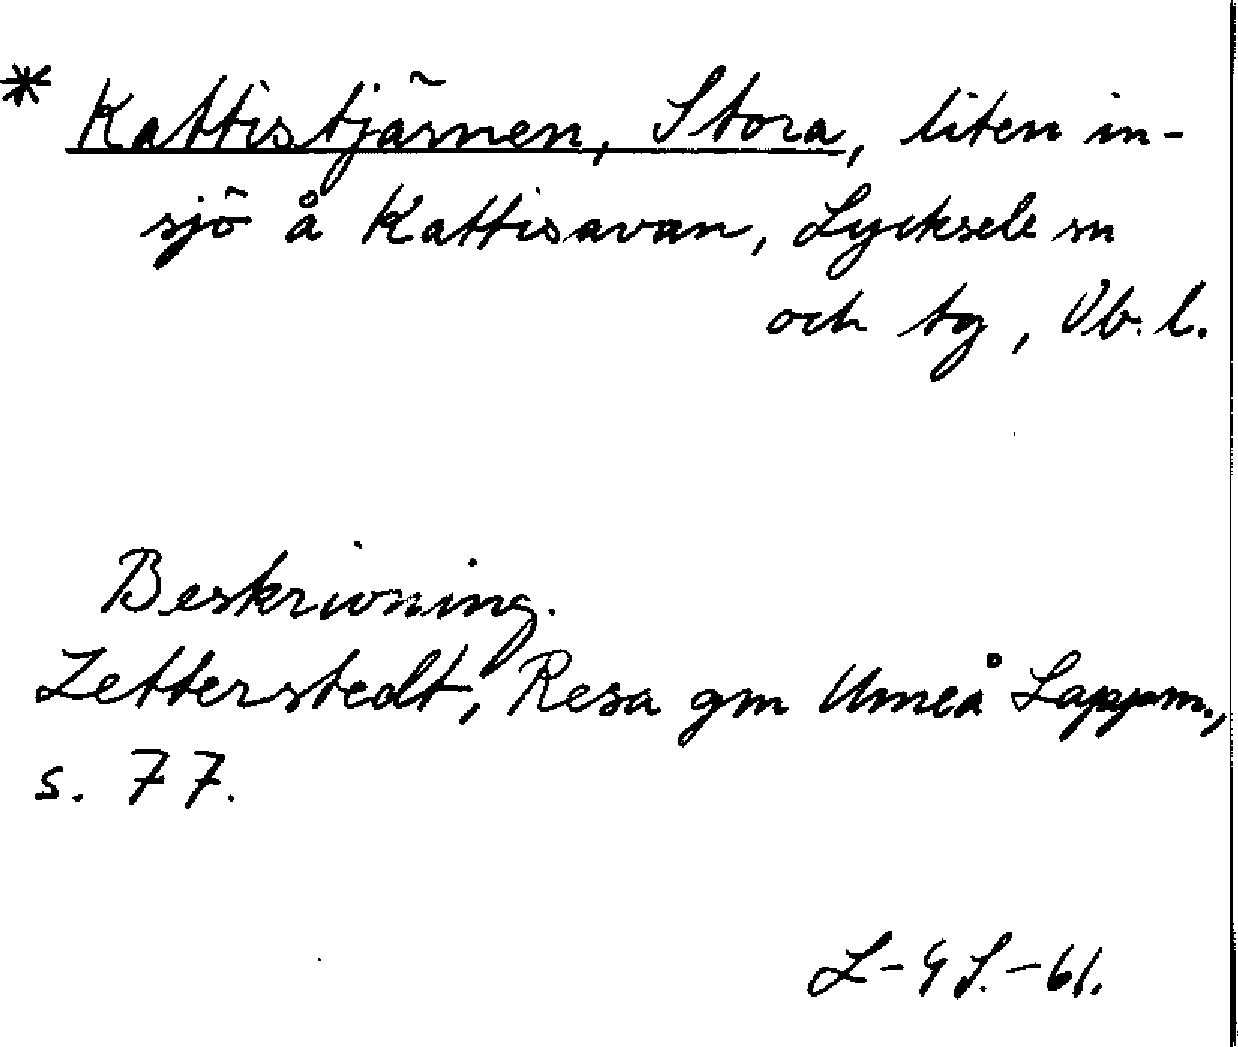 * Kattistjärnen, Stora, liten in-
sjö å Kattisavan, Lycksele sn
och tg, Vb. l.
Beskrivning.
Zetterstedt, Resa gm Umeå Lappm.,
s. 77.
L-G S.-61.